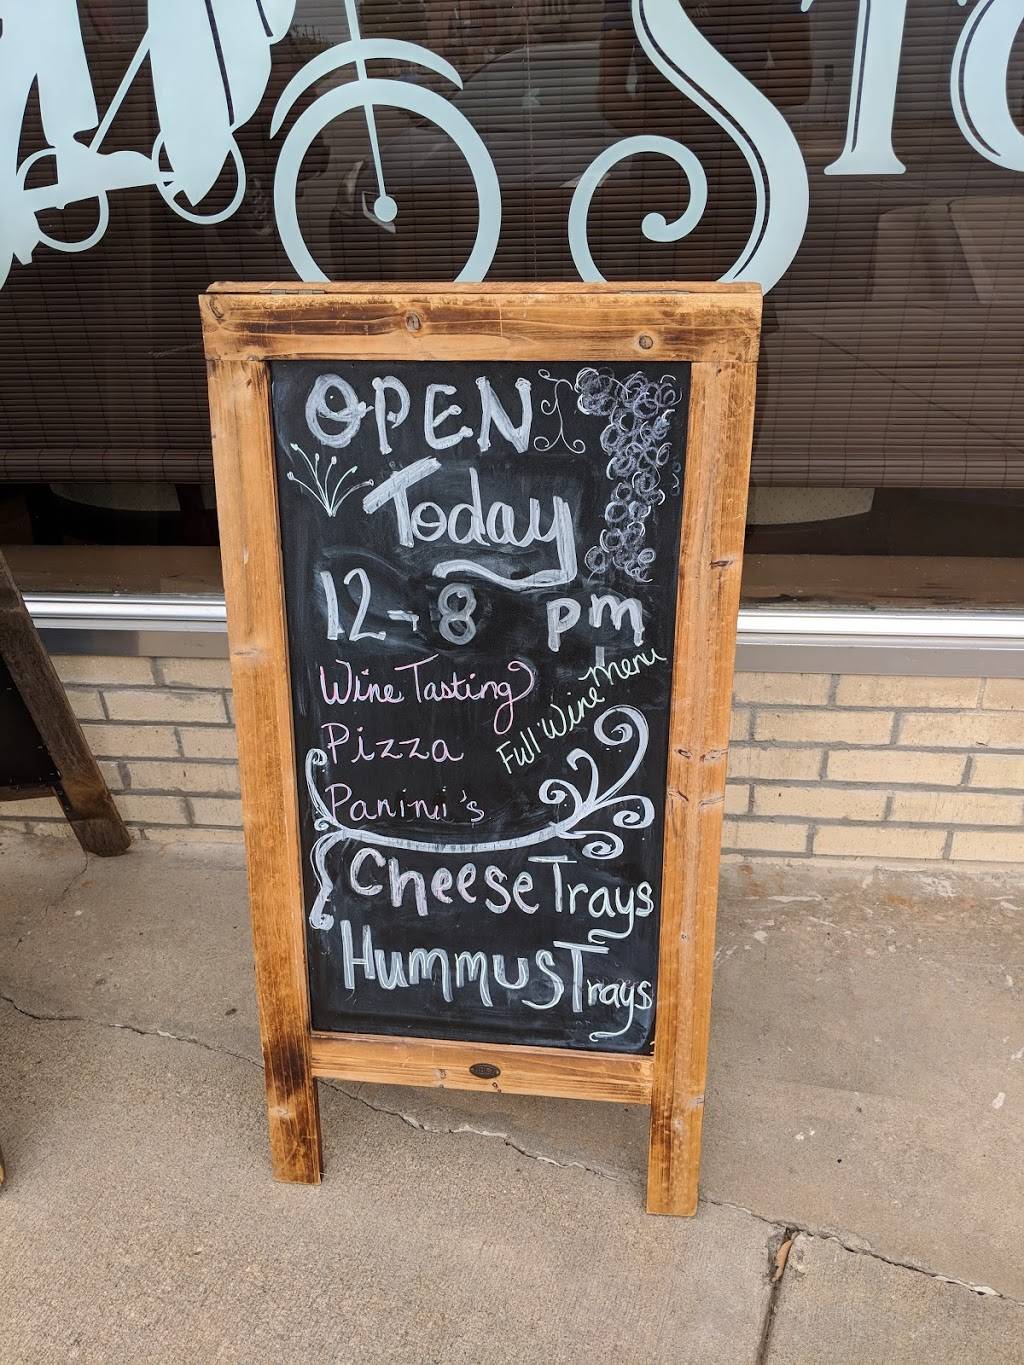 OPEN
Today
12-8 pm
Wine Tasting
Full Wine Menu
Pizza
Panini's
Cheese Trays
Hummus Trays